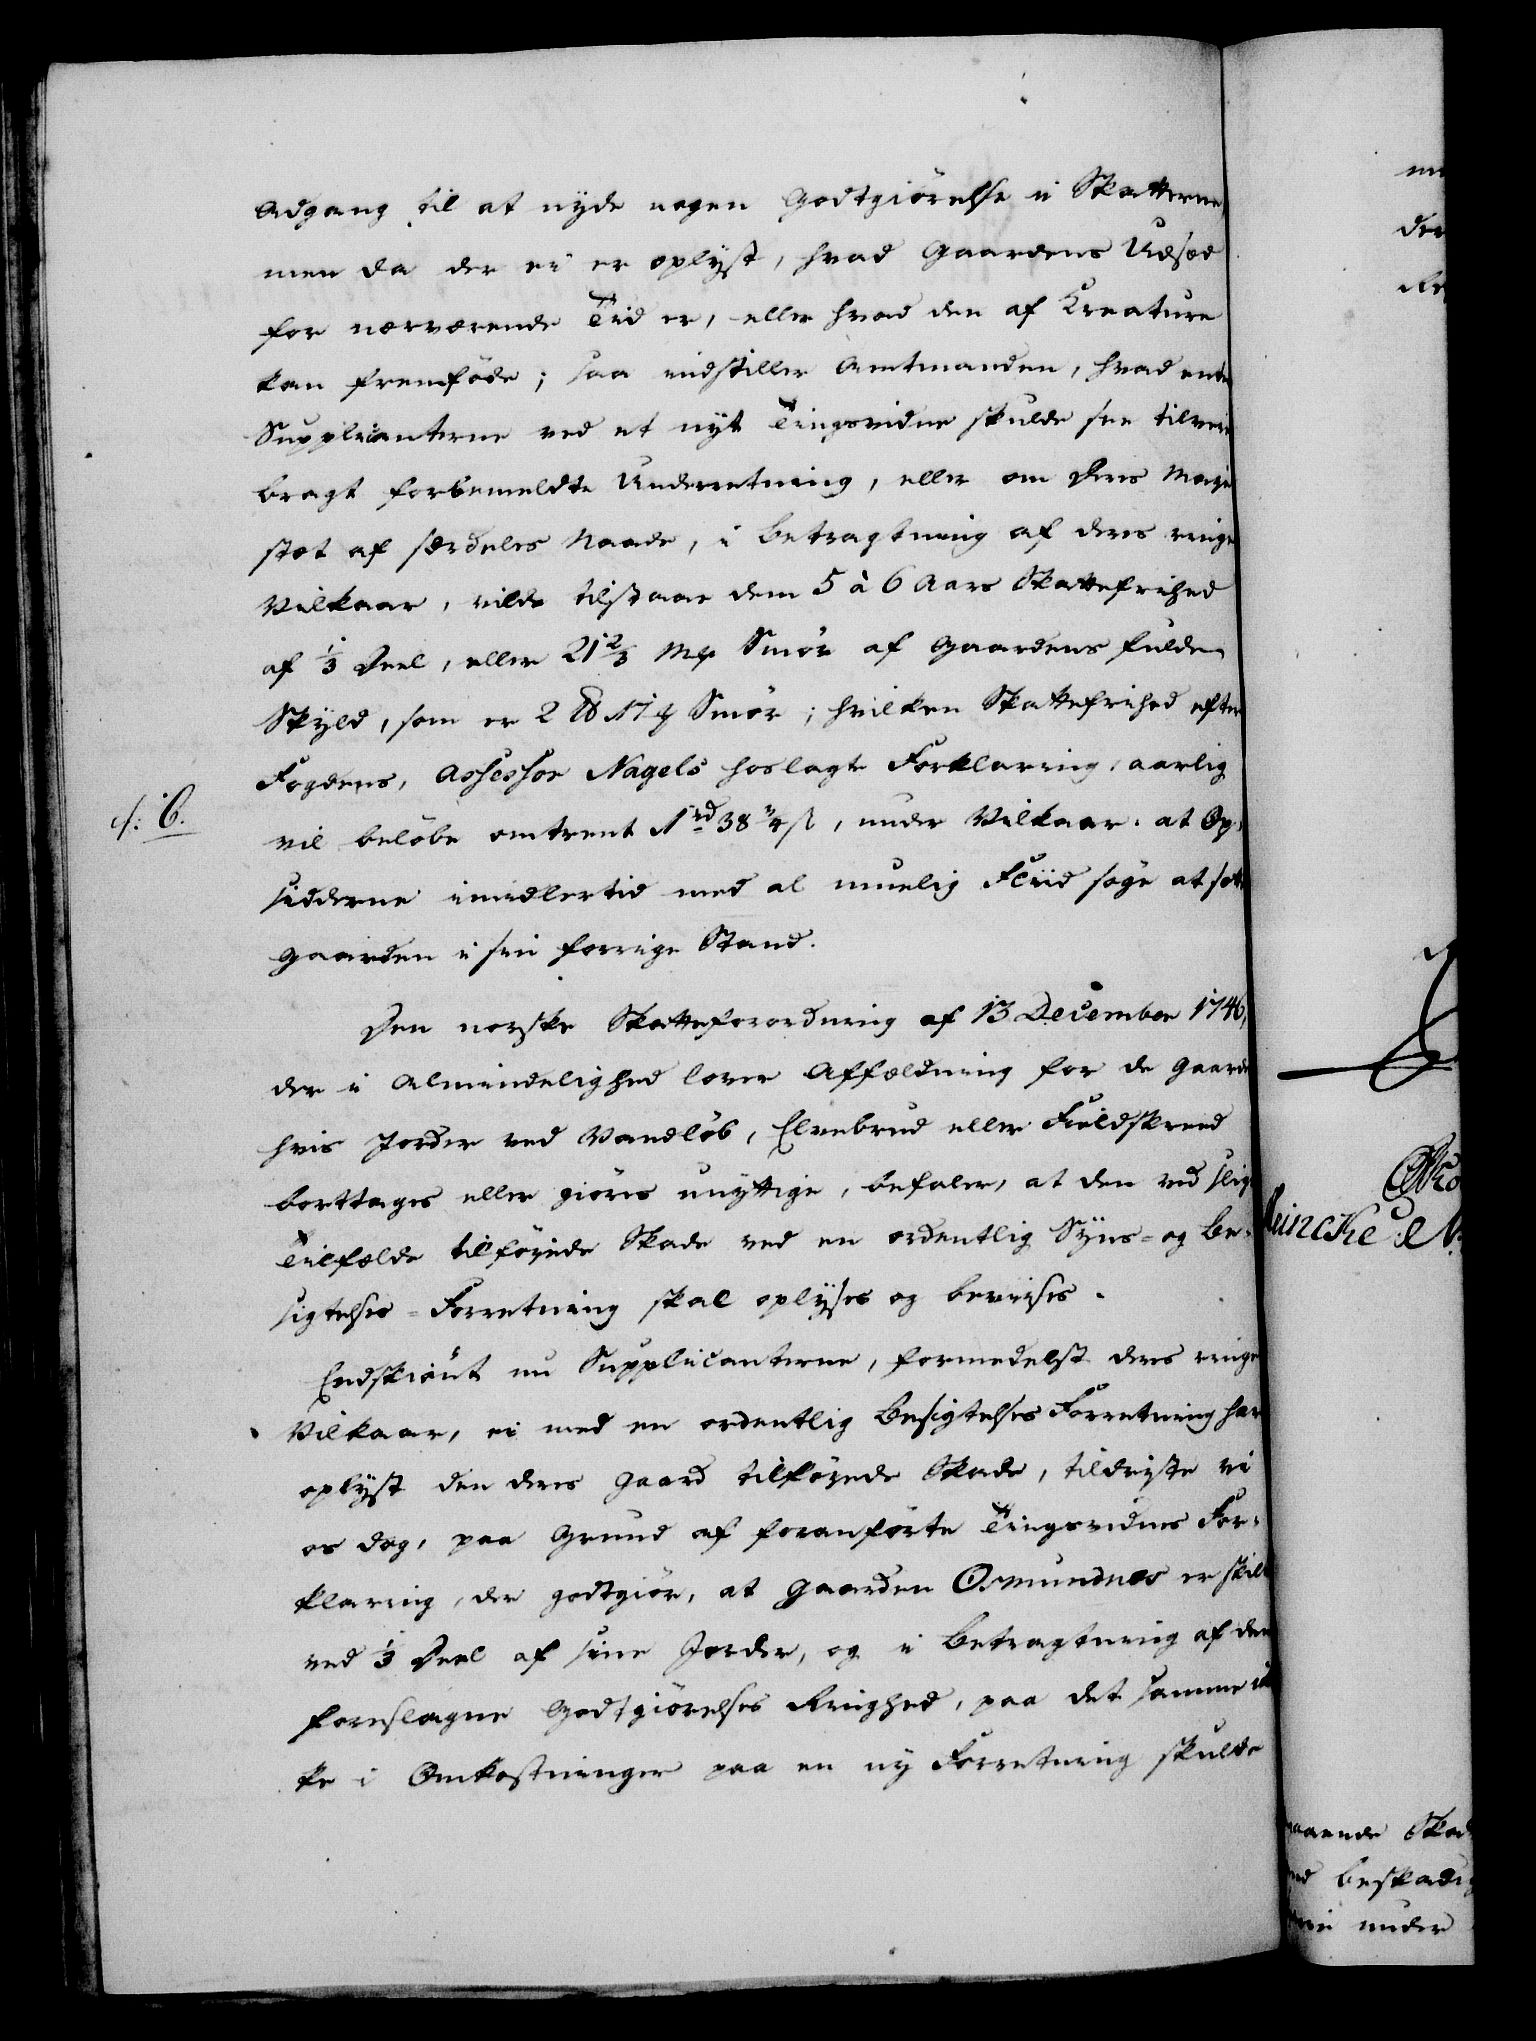 Adgang til at nyde nogen Godtgiörelse i Skatterne,
men da der ei er oplyst, hvad Gaardens Udsæd
for nærværende Tiid er, eller hvad den af Kreature
kan fremföde; saa indstiller Amtmanden, hvad enten
Supplicanterne ved et nyt Tingsvidne skulde see tilveie
bragt forbemeldte Underretning, eller om Deres Maje
stæt af særdeles Naade, i Betragtning af deres ringe
Vilkaar, vilde tilstaae dem 5 à 6 Aars Skattefrihed
af 1/3 Deel, eller 21 2/3 Mk Smör af Gaardens fulde
Skyld, som er 2 17 Smör; hvilken Skattefrihed efter
Fogdens, Assessor Nagels hoslagte Forklaring, aarlig
/: 6.
vil belöbe omtrent 1 rd 38 3/4 ß, under Vilkaar: at Op-
sidderne imidlertid med al muelig Fliid söge at sætte
Gaarden i sin forrige Stand.
Den norske Skatteforordning af 13 December 1746,
der i Almindelighed lover Affældning for de Gaarde
hvis Jorder ved Vandlöb, Elvebrud eller Fieldskreed
borttages eller giöres unyttige, befaler, at den ved slige
Tilfælde tilföyede Skade ved en ordentlig Syns- og Be-
sigtelses-Forretning skal oplyses og bevises.
Endskiönt nu Supplicanterne, formedelst deres ringe
Vilkaar, ei med en ordentlig Besigtelses Forretning har
oplyst den deres Gaard tilföyede Skade, tildriste vi
os dog, paa Grund af foranförte Tingsvidnes For-
klaring, der godtgiör, at Gaarden Osmundnes er skilt
ved 1/3 Deel af sine Jorder, og i Betragtning af den
foreslagne Godtgiörelses Ringhed, paa det samme ik
ke i Omkostninger paa en ny Forretning skulde